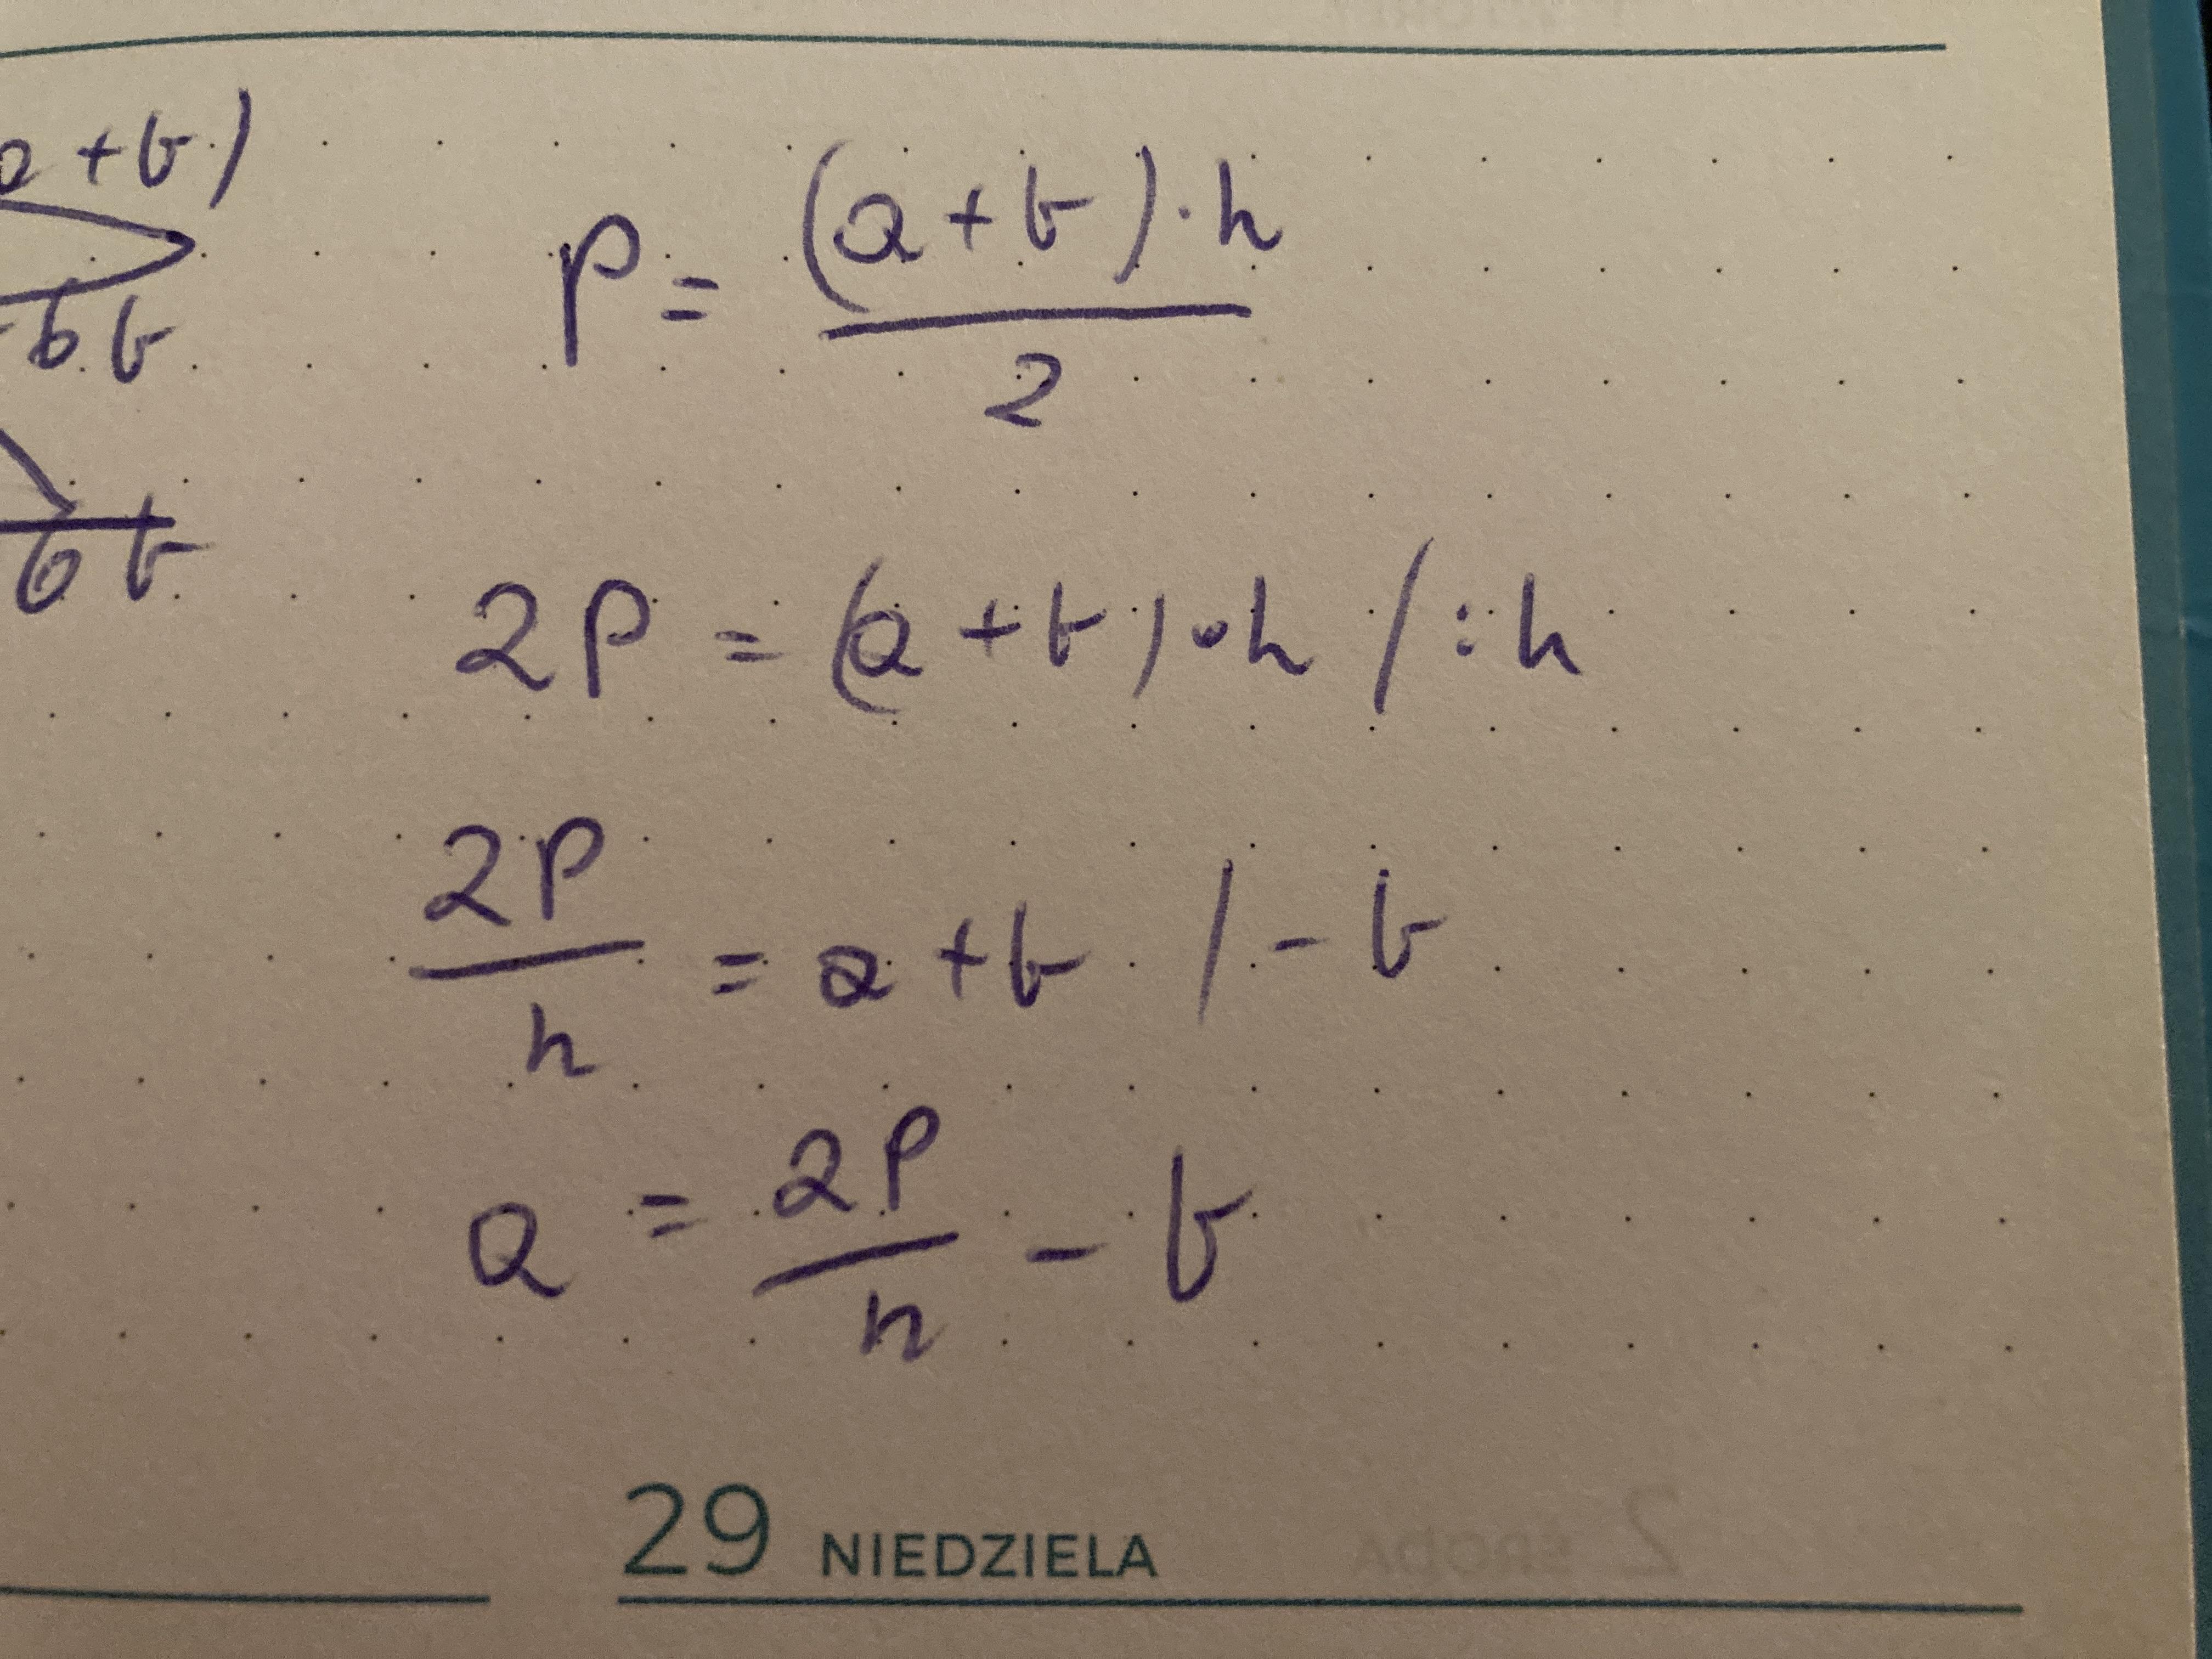 a+b)
bb
bb
P = (a+b)·h / 2
2P = (a+b)·h /:h
2P/h = a+b /-b
a = 2P/h - b
29 NIEDZIELA
2 ŚRODA